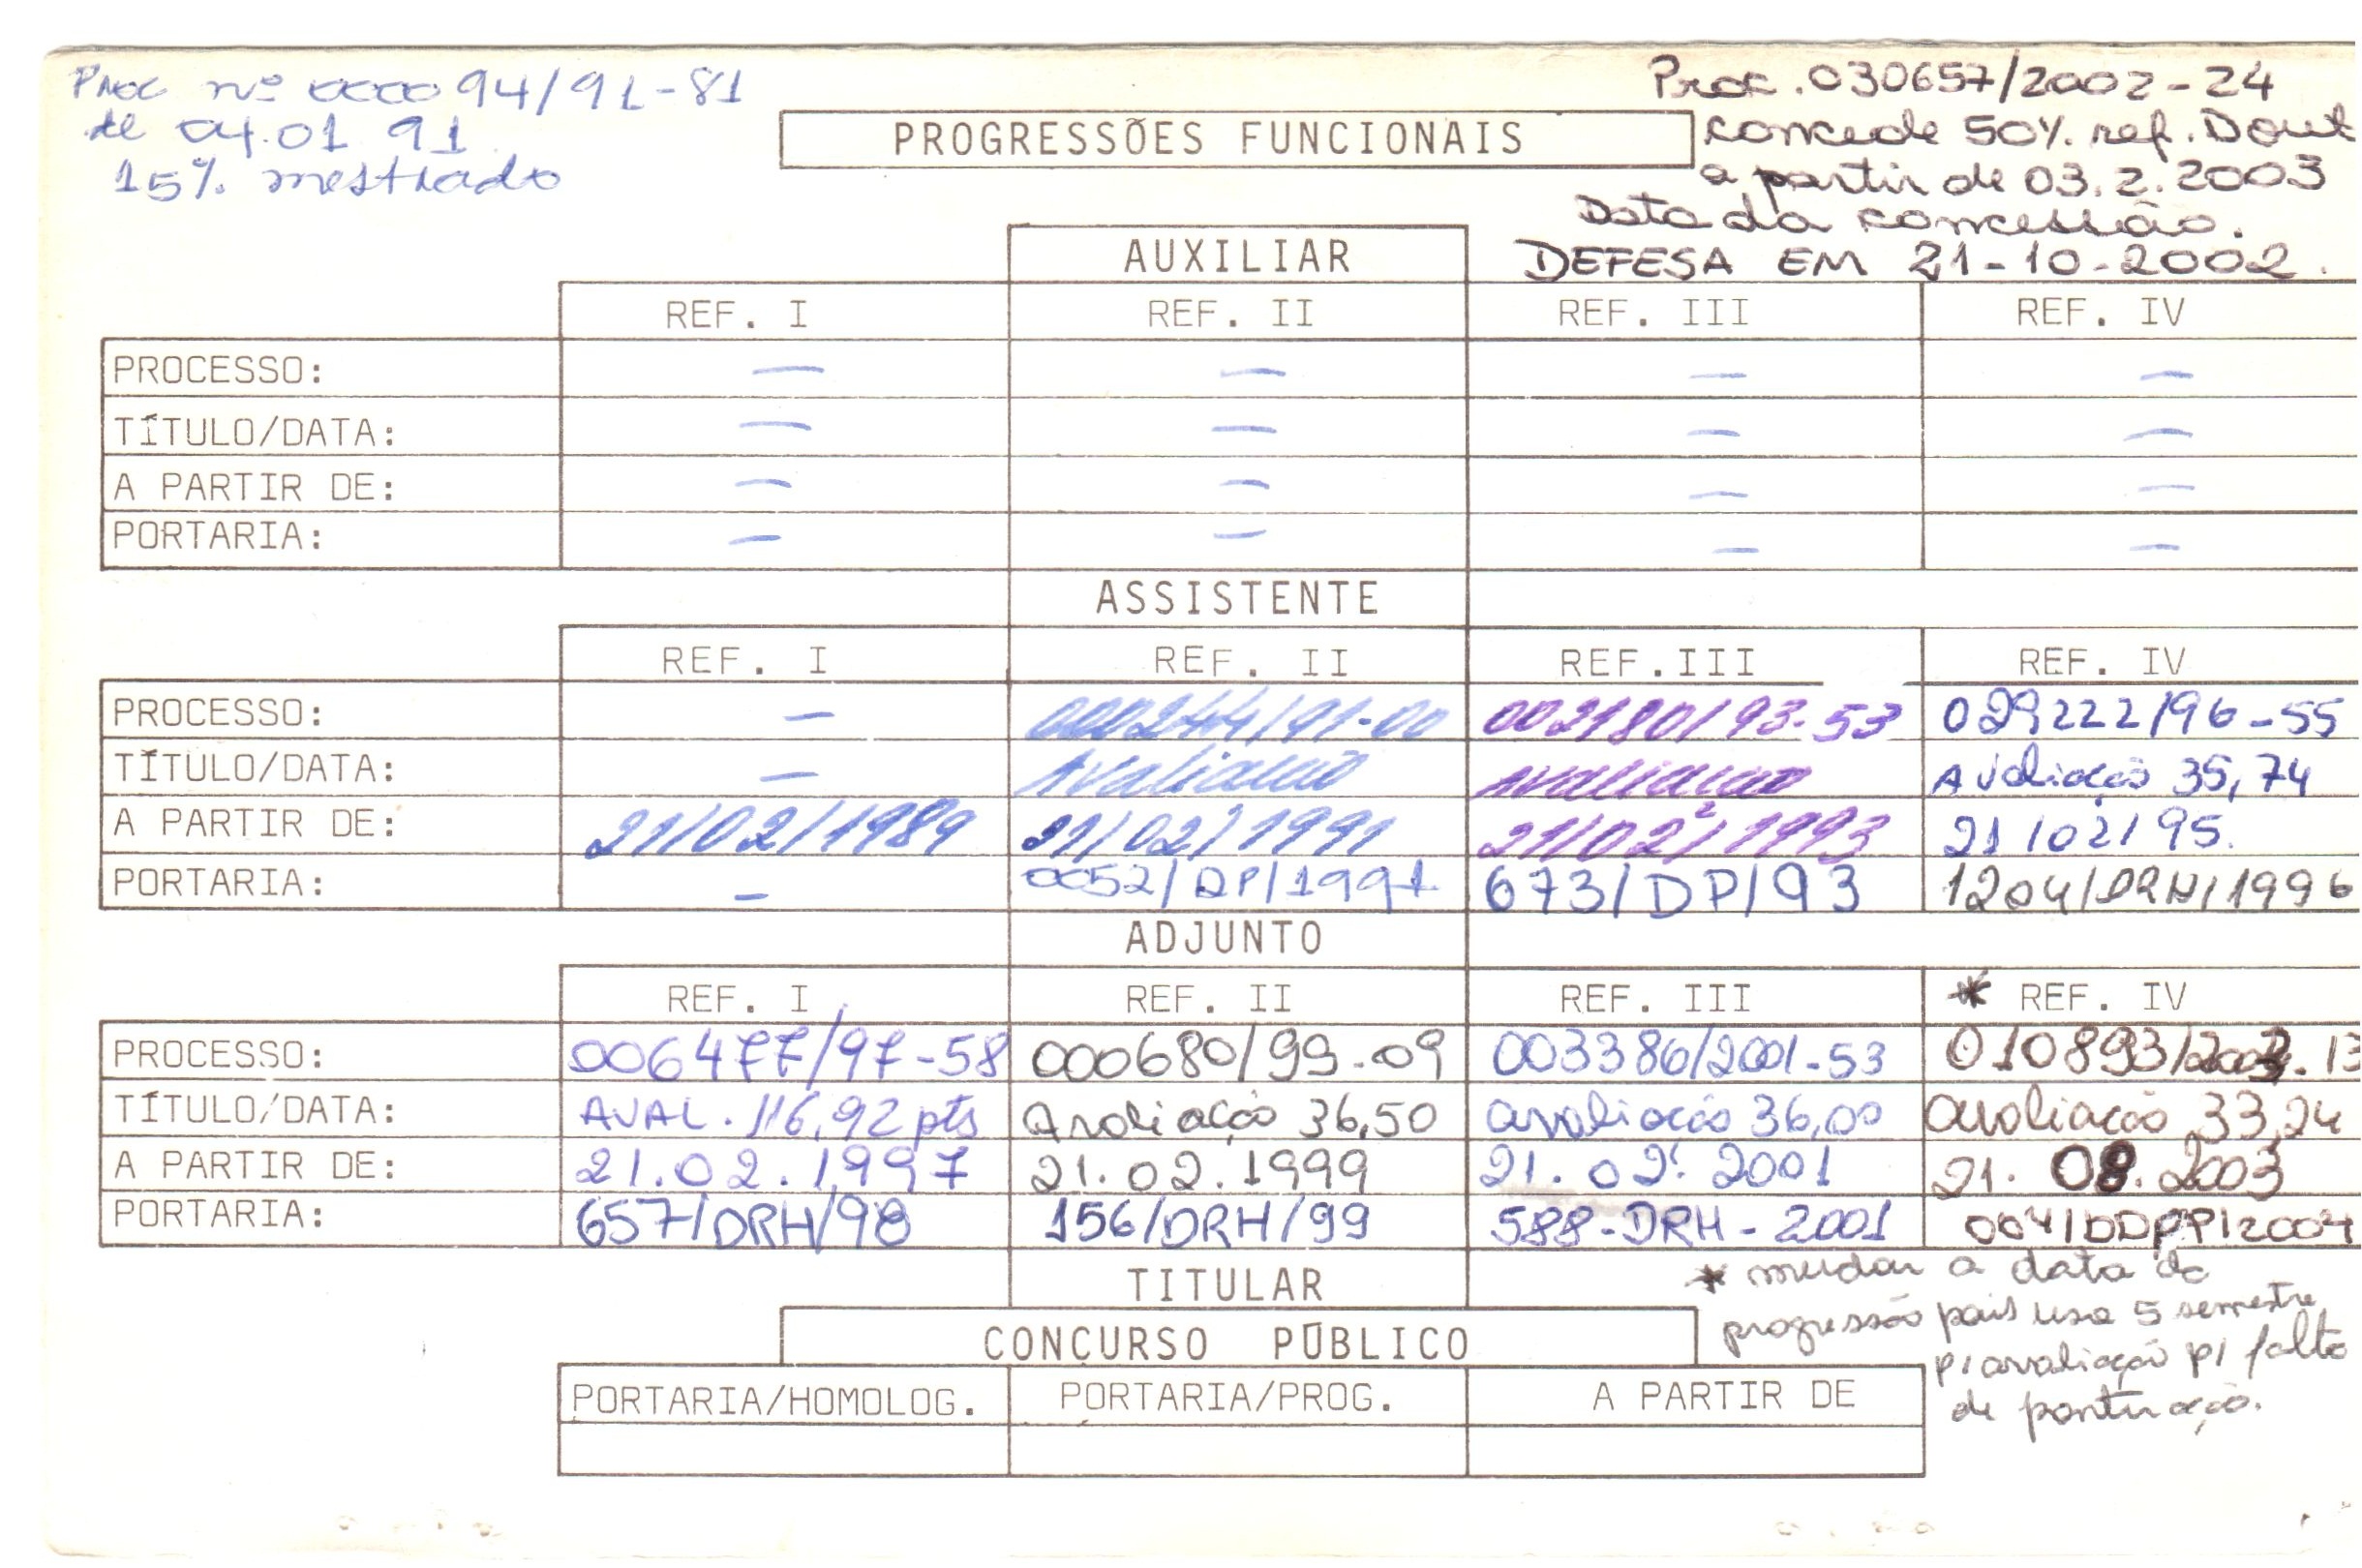 Proc nº 000094/91-81
de 04.01 91
15% mestrado
Proc.030657/2002-24
concede 50% ref. Dout
a partir de 03.2.2003
Data da concessão.
DEFESA EM 21-10-2002.
PROGRESSÕES FUNCIONAIS
AUXILIAR
REF. I REF. II REF. III REF. IV
PROCESSO: — — — —
TÍTULO/DATA: — — — —
A PARTIR DE: — — — —
PORTARIA: — — — —
ASSISTENTE
REF. I REF. II REF.III REF. IV
PROCESSO: — 000244/91-00 002180/93-53 029222/96-55
TÍTULO/DATA: — Avaliação avaliação Avaliação 35,74
A PARTIR DE: 21/02/1989 21/02/1991 21/02/1993 21/02/95.
PORTARIA: — 0052/DP/1991 673/DP/93 1204/DRH/1996
ADJUNTO
REF. I REF. II REF. III * REF. IV
PROCESSO: 006477/97-58 000680/99-09 003386/2001-53 010893/2003.13
TÍTULO/DATA: AVAL. 116,92 pts Avaliação 36,50 avaliação 36,00 avaliação 33,24
A PARTIR DE: 21.02.1997 21.02.1999 21.02.2001 21.08.2003
PORTARIA: 657/DRH/98 156/DRH/99 588-DRH-2001 004/DDPP/2004
TITULAR
* mudar a data da
progressão pois usa 5 semestre
p/ avaliação p/ falta
de pontuação.
CONCURSO PÚBLICO
PORTARIA/HOMOLOG. PORTARIA/PROG. A PARTIR DE